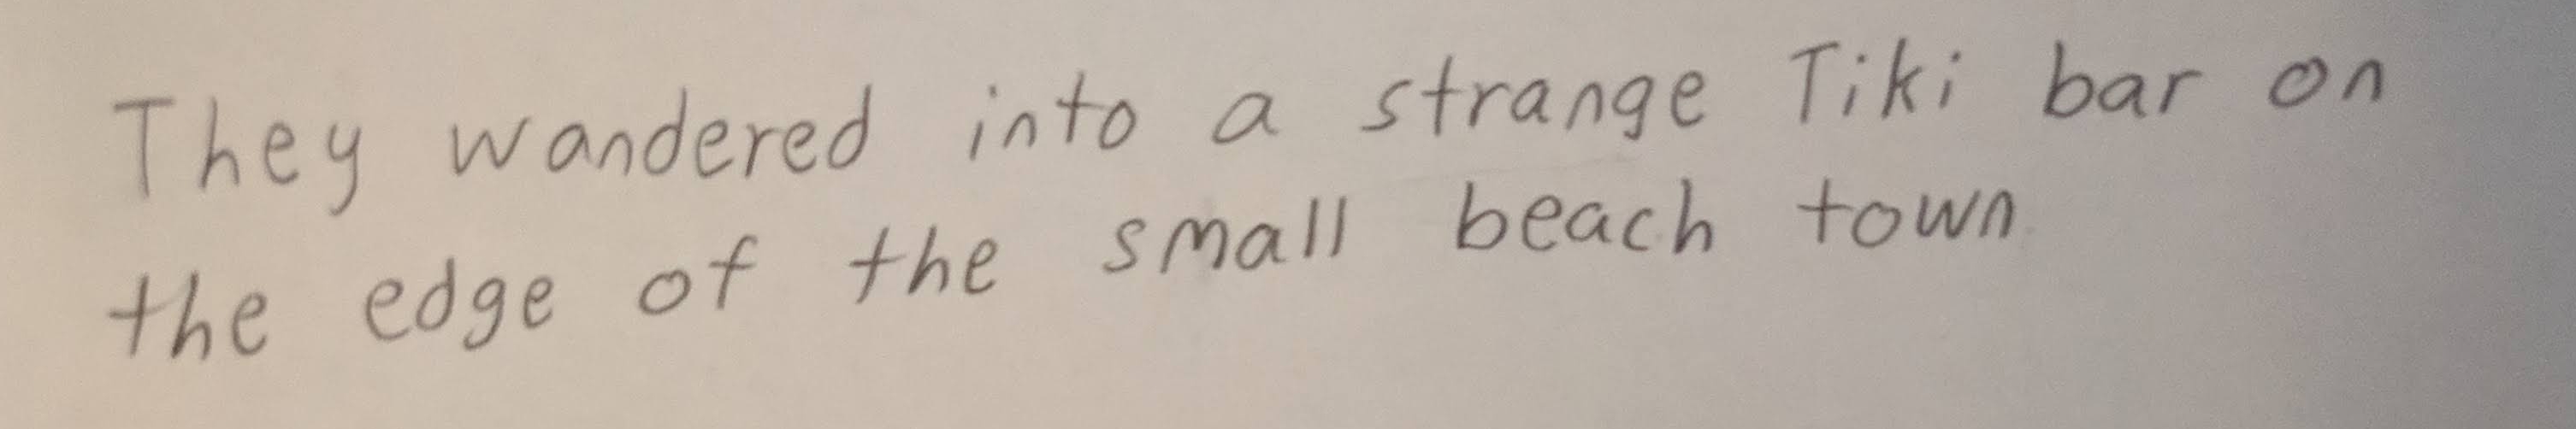 They wandered into a strange Tiki bar on
the edge of the small beach town.